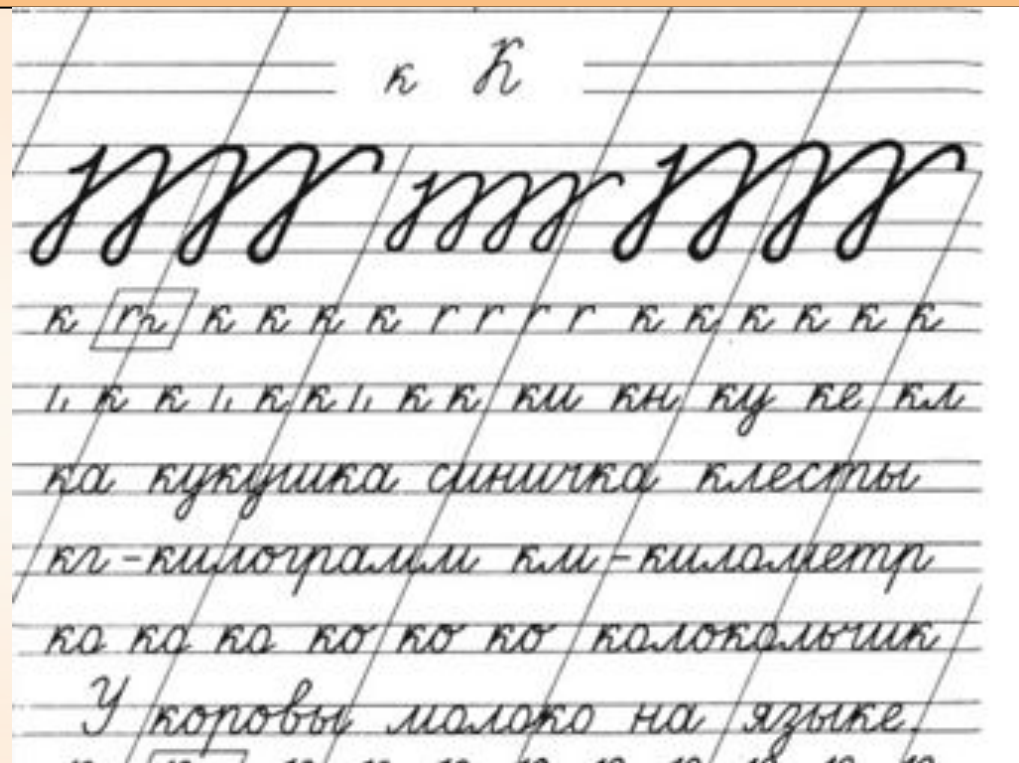 к К
к к к к к г г г г к к к к к к
к к к к к к ки кн ку ке кл
ка кукушка синичка клесты
кг - килограмм км - километр
ка ка ка ко ко ко колокольчик
У коровы молоко на языке.